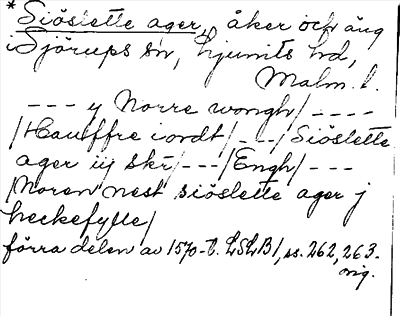 *Siöslette ager, åker och äng
i Sjörups sn, Ljunits hd,
Malm. l.
--- y Norre wongh/ ----
/Hauffre iordt/ --- /Siöslette
ager iij skr/ --- /Engh/ ---
/Noren nest siöslette ager j
heckefylle/
förra delen av 1570-t. LSLB1, ss. 262, 263.
orig.